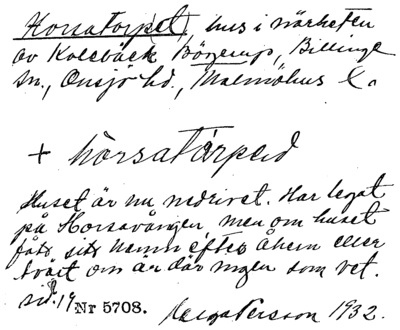 Horsatorpet, hus i närheten
av Kolebäck, Bögerup, Billinge
sn., Onsjö hd., Malmöhus l.
+ hòrsatårped
Huset är nu nedrivet. Har legat
på Horsavången, men om huset
fått sitt namn efter åhem eller
tvärt om är där ingen som vet.
sid. 19 Nr 5708. Helga Persson 1932.